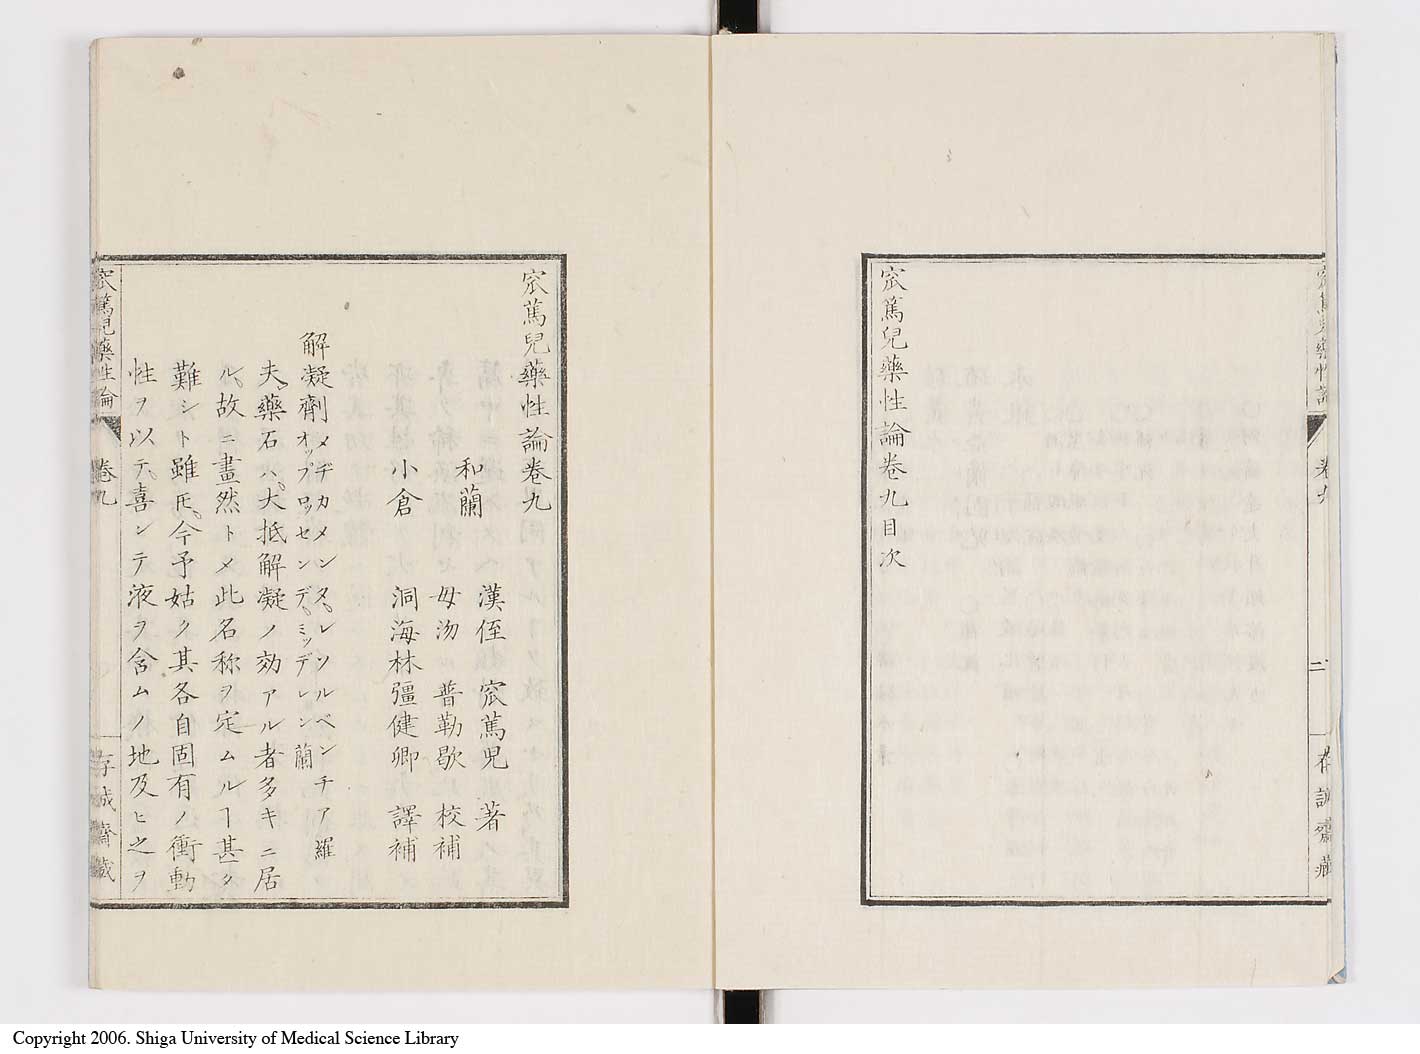 窊篤兒藥性論
卷九
二
存誠齋藏
窊篤兒藥性論卷九目次
窊篤兒藥性論卷九
和蘭　漢侄　窊篤兒　著
毋沕　普勒歇　校補
小倉　洞海林彊健卿　譯補
解凝劑メヂカメンタ。レソルベンチア　羅
オップロッセンデ。ミッデレン　蘭
夫、藥石ハ。大抵解凝ノ効アル者多キニ居
ル。故ニ畫然トメ此名称ヲ定ムルヿ甚タ
難シト雖𪜈。今予姑ク其各自固有ノ衝動
性ヲ以テ。喜ンテ液ヲ含ムノ地及ヒ之ヲ
窊篤兒藥性論
卷九
存誠齋藏
Copyright 2006. Shiga University of Medical Science Library